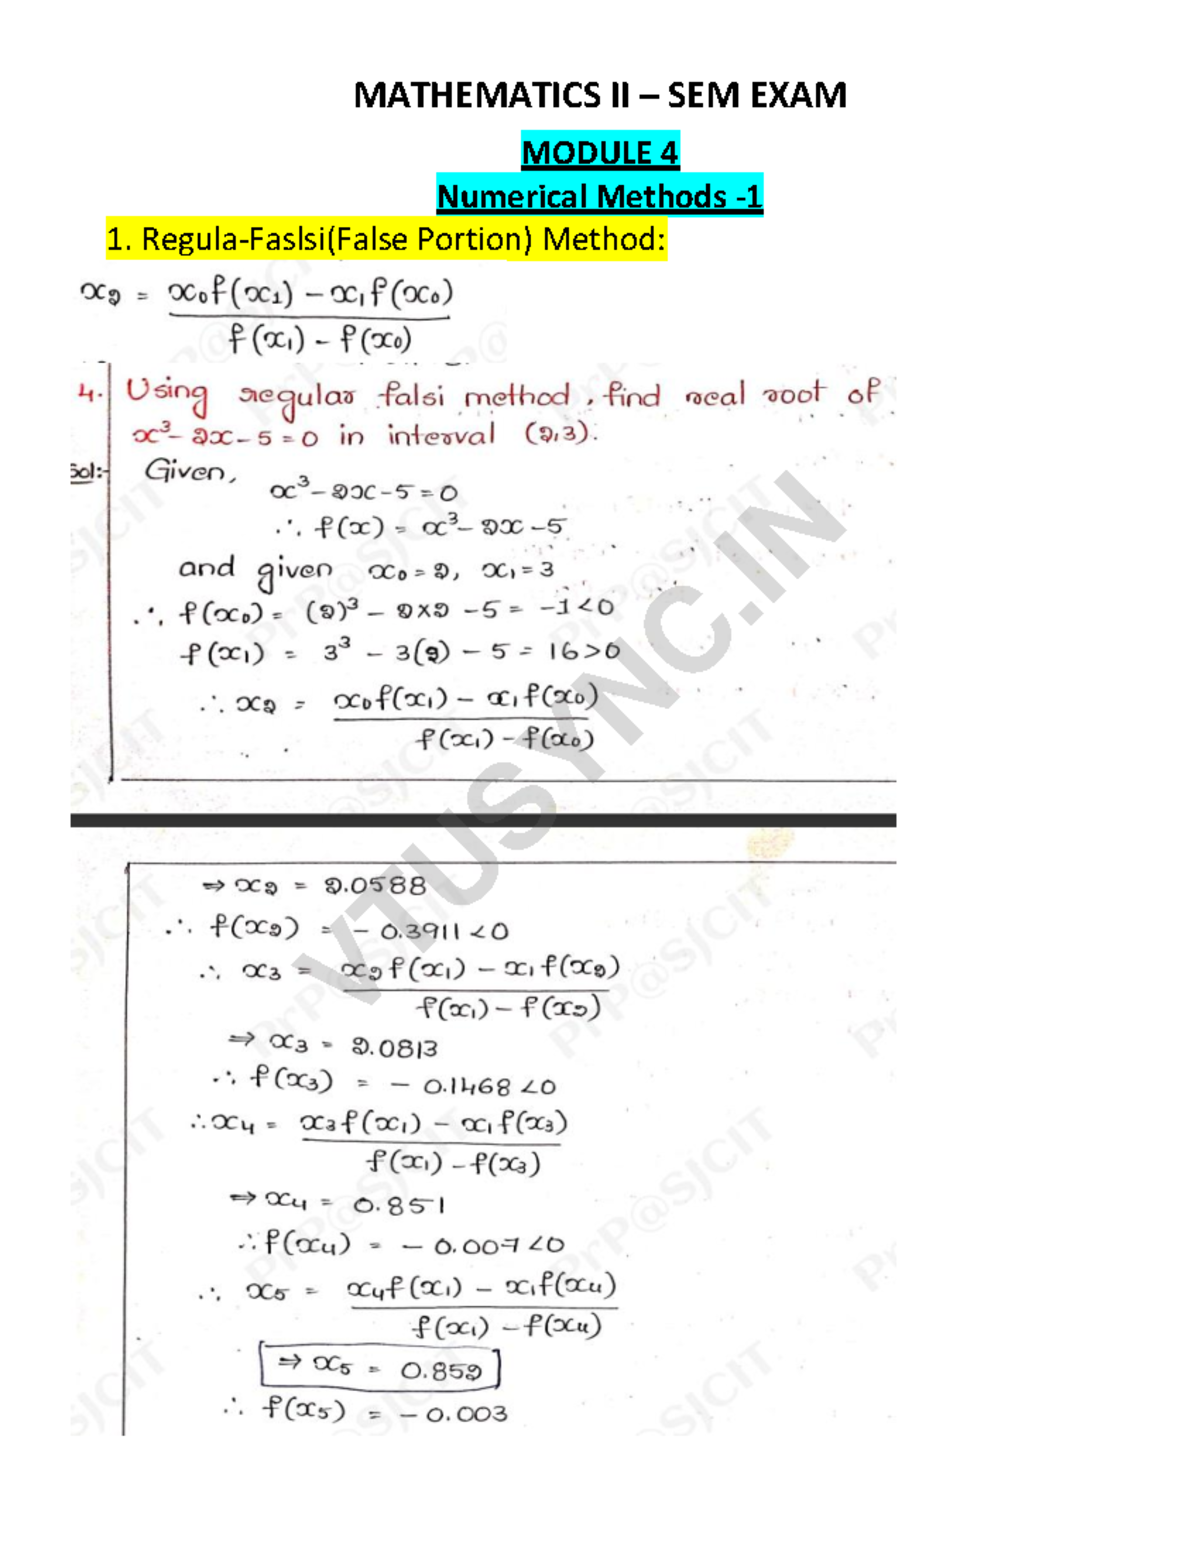 MATHEMATICS II – SEM EXAM
MODULE 4
Numerical Methods -1
1. Regula-Faslsi(False Portion) Method:
x₂ = x₀f(x₁) – x₁f(x₀)
f(x₁) – f(x₀)
4. Using regular falsi method, find real root of
x³ – 2x – 5 = 0 in interval (2,3).
Sol:- Given,
x³ – 2x – 5 = 0
∴ f(x) = x³ – 2x – 5
and given x₀ = 2, x₁ = 3
∴ f(x₀) = (2)³ – 2×2 – 5 = –1 < 0
f(x₁) = 3³ – 3(2) – 5 = 16 > 0
∴ x₂ = x₀f(x₁) – x₁f(x₀)
f(x₁) – f(x₀)
⇒ x₂ = 2.0588
∴ f(x₂) = – 0.3911 < 0
∴ x₃ = x₂f(x₁) – x₁f(x₂)
f(x₁) – f(x₂)
⇒ x₃ = 2.0813
∴ f(x₃) = – 0.1468 < 0
∴ x₄ = x₃f(x₁) – x₁f(x₃)
f(x₁) – f(x₃)
⇒ x₄ = 0.851
∴ f(x₄) = – 0.007 < 0
∴ x₅ = x₄f(x₁) – x₁f(x₄)
f(x₁) – f(x₄)
⇒ x₅ = 0.852
∴ f(x₅) = – 0.003
VTUSYNC.IN
PrP@SJCIT